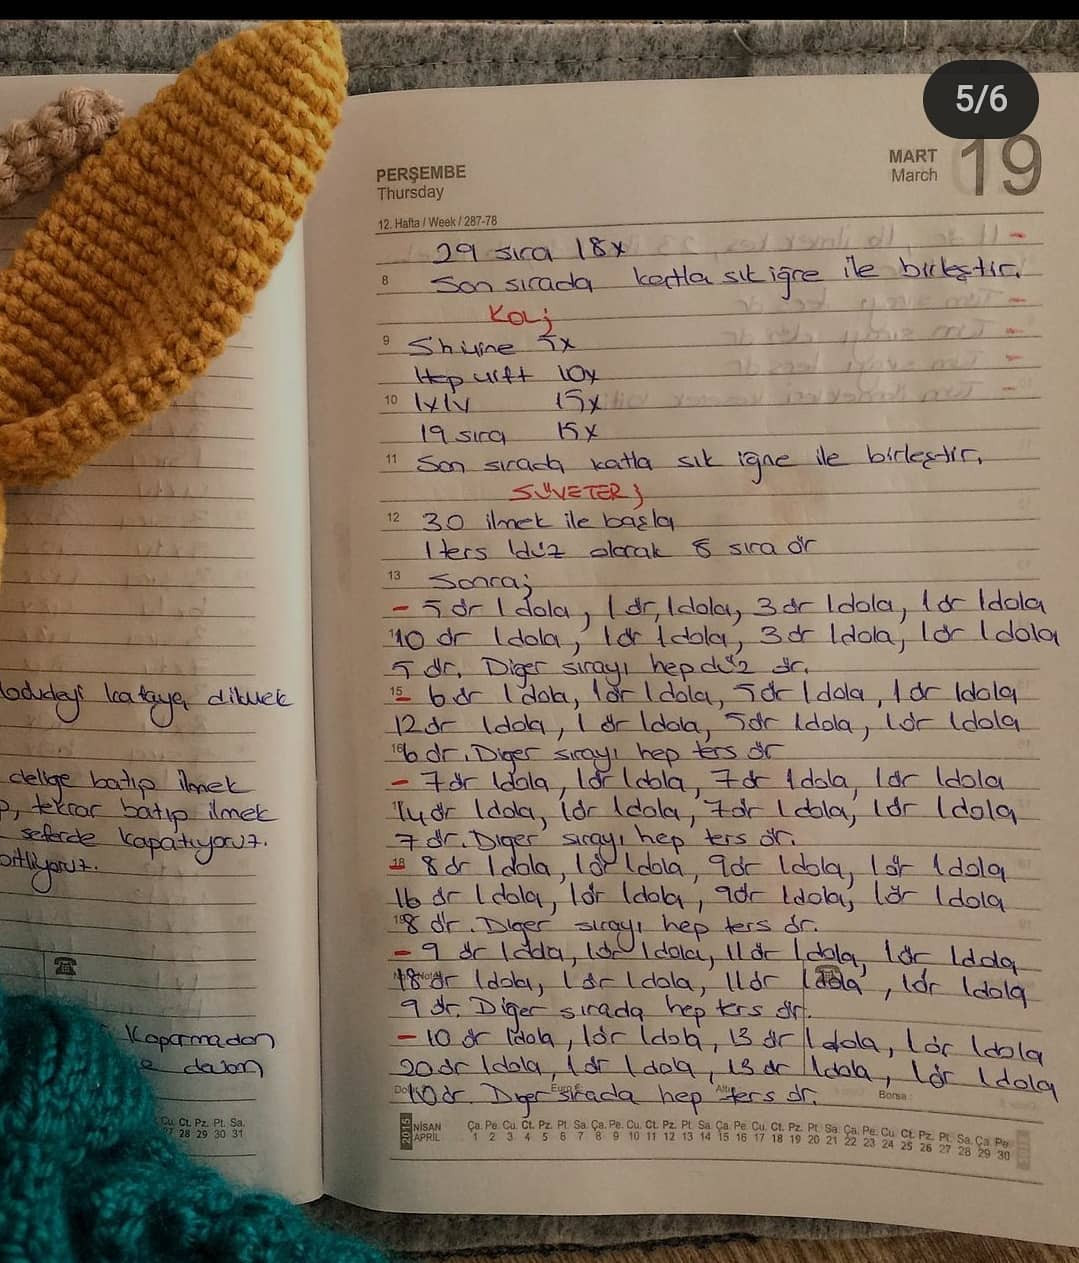 5/6
PERŞEMBE
Thursday
MART
March
19
12. Hafta / Week / 287-78
29 sıra 18x
8 Son sırada katla sık iğne ile birleştir.
Kol;
9 Sihirne 5x
Hep 10x
10 1x1v 15x
19 sıra 15x
11 Son sırada katla sık iğne ile birleştir.
SÜVETER;
12 30 ilmek ile başla
1 ters 1düz olarak 8 sıra ör
13 Sonra;
- 5 ör 1 dola, 1 ör, 1dola, 3 ör 1dola, 1 ör 1dola
10 ör 1dola, 1ör 1dola, 3 ör 1dola, 1ör 1dola
5 ör. Diğer sırayı hep düz ör.
15 - 6 ör 1 dola, 1ör 1dola, 5ör 1dola, 1 ör 1dola
12 ör 1dola, 1 ör 1dola, 5ör 1dola, 1ör 1dola
16 6 ör. Diğer sırayı hep ters ör
- 7 ör 1dola, 1ör 1dola, 7 ör 1dola, 1ör 1dola
14 ör 1dola, 1ör 1dola, 7ör 1dola, 1ör 1dola
7 ör. Diğer sırayı hep ters ör.
18 - 8 ör 1dola, 1ör 1dola, 9ör 1dola, 1 ör 1dola
16 ör 1dola, 1ör 1dola, 9ör 1dola, 1ör 1dola
19 8 ör. Diğer sırayı hep ters ör.
- 9 ör 1dola, 1ör 1dola, 11ör 1dola, 1ör 1dola
18 ör 1dola, 1ör 1dola, 11ör 1dola, 1ör 1dola
9 ör. Diğer sırada hep ters ör.
- 10 ör 1dola, 1ör 1dola, 13 ör 1dola, 1ör 1dola
20ör 1dola, 1ör 1dola, 13 ör 1dola, 1ör 1dola
10ör. Diğer sırada hep ters ör.
Borsa
2015 NİSAN APRIL
Ça. Pe. Cu. Ct. Pz. Pt. Sa. Ça. Pe. Cu. Ct. Pz. Pt. Sa. Ça. Pe. Cu. Ct. Pz. Pt. Sa. Ça. Pe. Cu. Ct. Pz. Pt. Sa. Ça. Pe.
1 2 3 4 5 6 7 8 9 10 11 12 13 14 15 16 17 18 19 20 21 22 23 24 25 26 27 28 29 30
kafaya dikmek
deliğe batıp ilmek
tekrar batıp ilmek
seferde kapatıyoruz.
Koparmadan
devam
Cu. Ct. Pz. Pt. Sa.
27 28 29 30 31